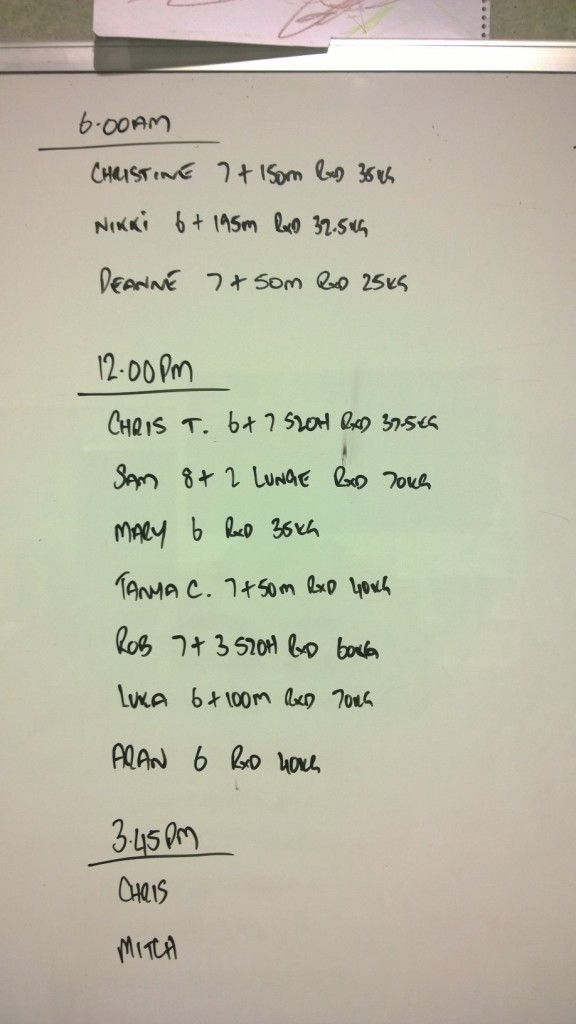 6.00AM
CHRISTINE 7 + 150m RxD 35KG
NIKKI 6 + 195m RxD 32.5KG
DEANNE 7 + 50m RxD 25KG
12.00PM
CHRIS T. 6 + 7 S2OH RxD 37.5KG
SAM 8 + 2 LUNGE RxD 70KG
MARY 6 RxD 35KG
TANYA C. 7 + 50m RxD 40KG
ROB 7 + 3 S2OH RxD 60KG
LUKA 6 + 100m RxD 70KG
ARAN 6 RxD 40KG
3.45PM
CHRIS
MITCH